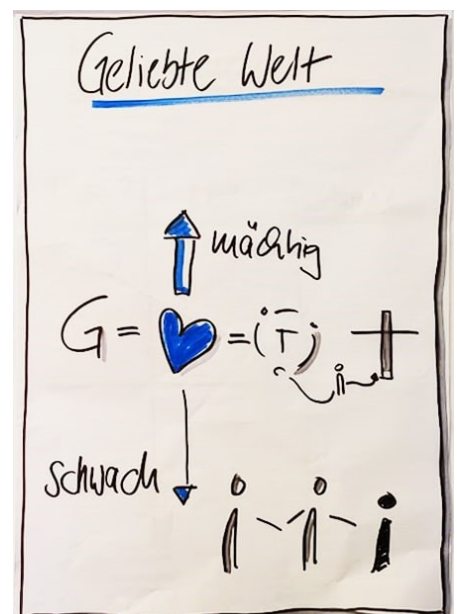 Geliebte Welt
mächtig
G = = (T)
schwach